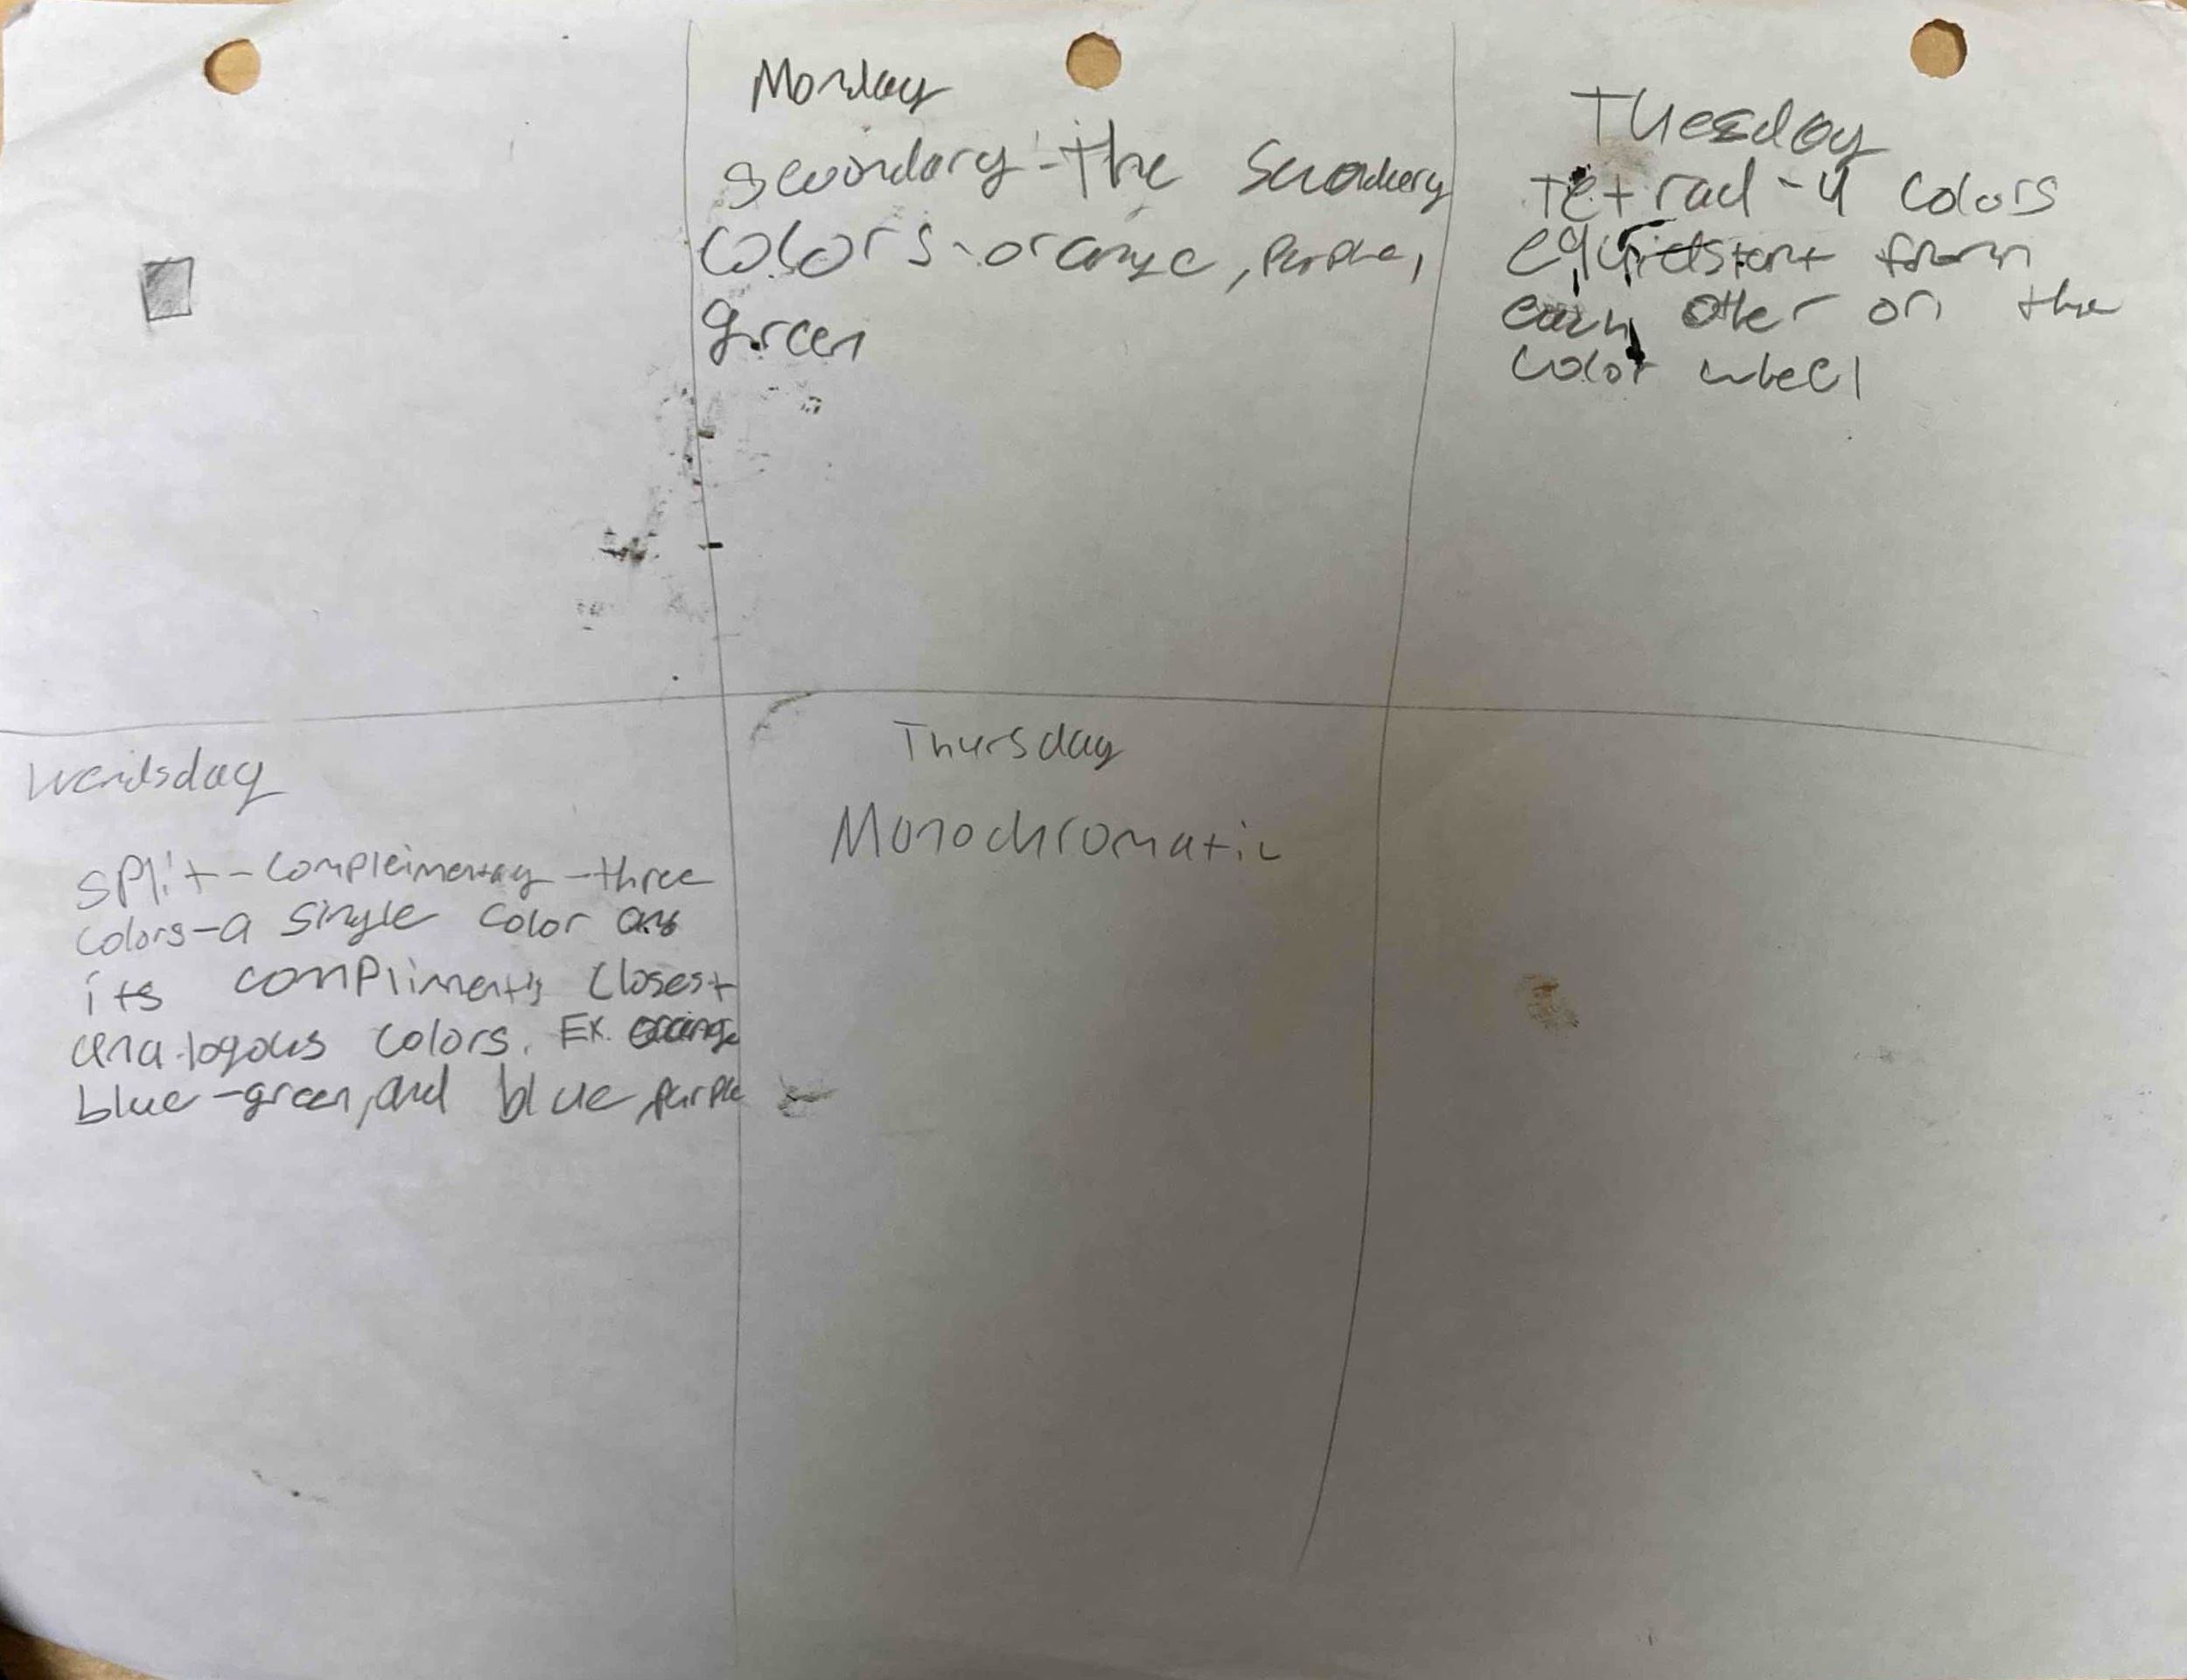 Monday
secondary-the Secondary
colors-orange, purple,
green
Tuesday
tetrad-4 colors
equidistant from
each other on the
color wheel
Wendsday
split-compleimentay-three
colors-a single color and
its compliment's closest
analogous colors. Ex. orange
blue-green, and blue purple
Thursday
Monochromatic